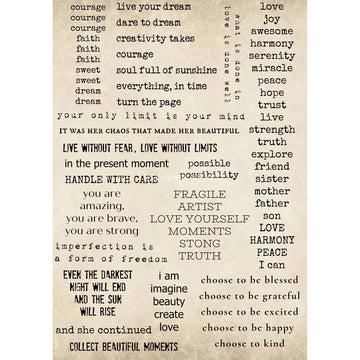 courage
courage
courage
faith
faith
faith
sweet
sweet
dream
dream
live your dream
dare to dream
creativity takes
courage
soul full of sunshine
everything, in time
turn the page
what is done in
love is done well
love
joy
awesome
harmony
serenity
miracle
peace
hope
trust
live
strength
truth
explore
friend
sister
mother
father
son
LOVE
HARMONY
PEACE
I can
your only limit is your mind
IT WAS HER CHAOS THAT MADE HER BEAUTIFUL
LIVE WITHOUT FEAR, LOVE WITHOUT LIMITS
in the present moment
HANDLE WITH CARE
possible
possibility
you are
amazing,
you are brave,
you are strong
FRAGILE
ARTIST
LOVE YOURSELF
MOMENTS
STONG
TRUTH
imperfection is
a form of freedom
EVEN THE DARKEST
NIGHT WILL END
AND THE SUN
WILL RISE
i am
imagine
beauty
create
love
choose to be blessed
choose to be grateful
choose to be excited
choose to be happy
choose to kind
and she continued
COLLECT BEAUTIFUL MOMENTS